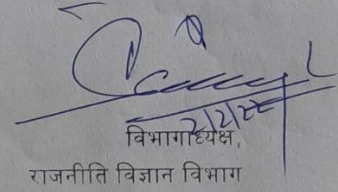 2/2/22
विभागाध्यक्ष,
राजनीति विज्ञान विभाग